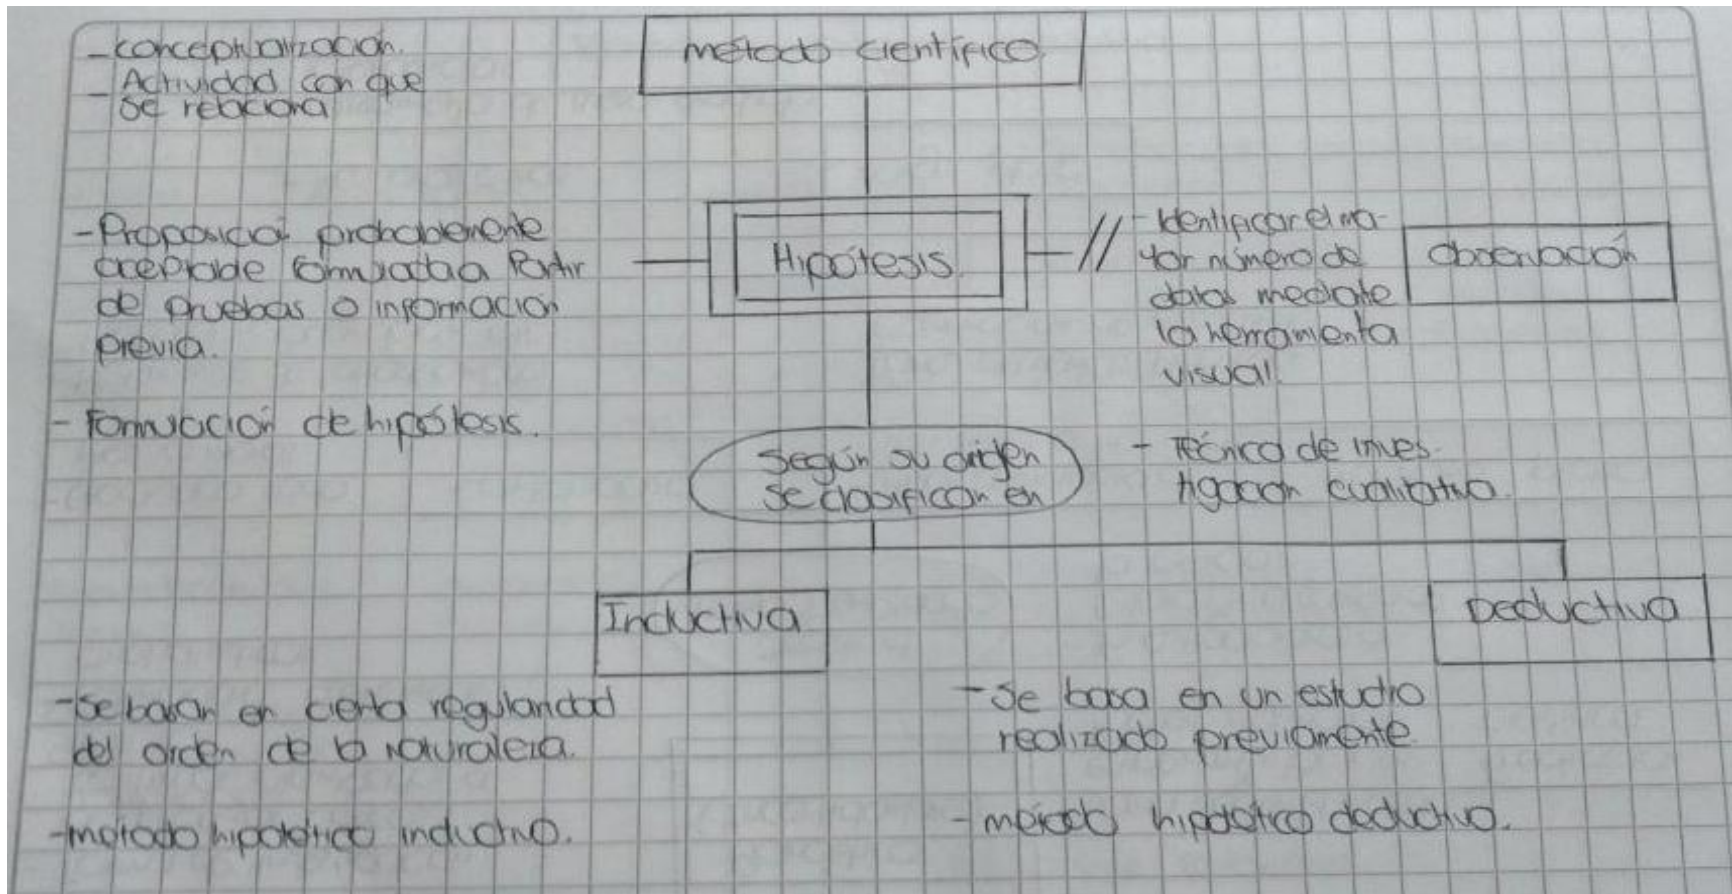 - Conceptualización.
- Actividad con que
se relaciona
método científico
- Proposición probablemente
aceptable formulada a Partir
de pruebas o información
previa.
- Formulación de hipótesis.
Hipótesis
- Identificar el ma-
yor número de
datos mediate
la herramienta
visual.
- Técnica de inves-
tigación cualitativa.
Observación
Según su origen
se clasifican en
Inductiva
- Se basan en cierta regularidad
del orden de la naturaleza.
- metodo hipotético inductivo.
Deductiva
- Se basa en un estudio
realizado previamente.
- método hipotético deductivo.